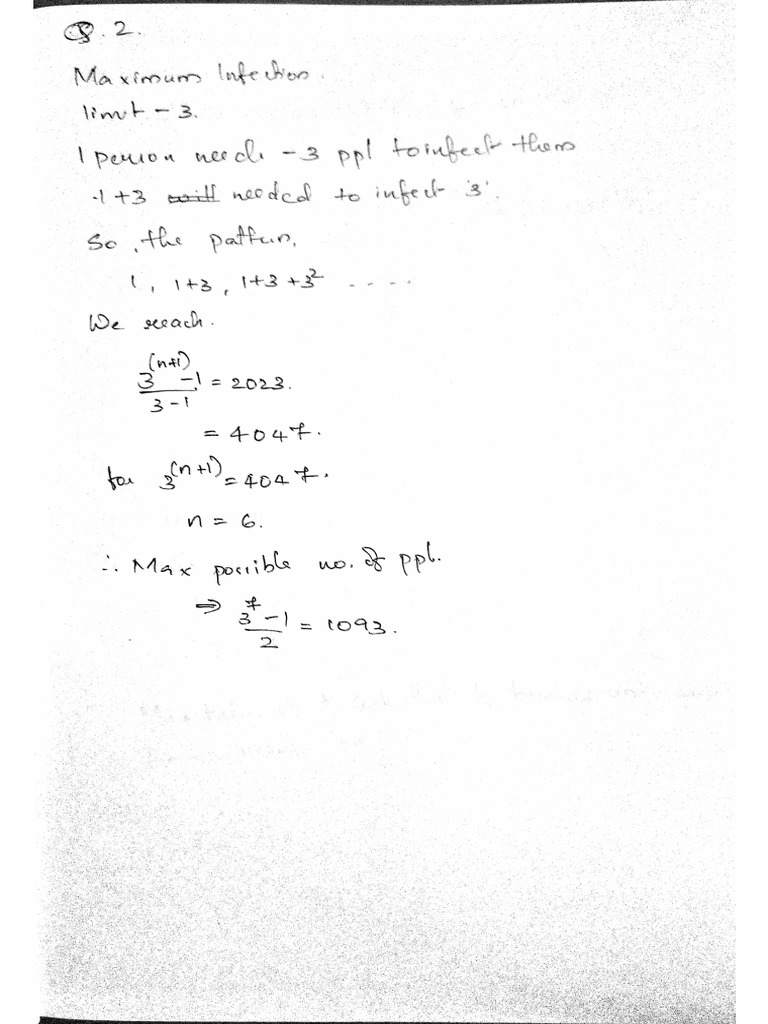 Q.2.
Maximum Infection.
limit - 3.
1 person needs - 3 ppl to infect them
·1+3 will needed to infect '3'.
So, the pattern,
1, 1+3, 1+3+3² ....
We reach.
(3^(n+1) - 1)/(3-1) = 2023.
= 4047.
for 3^(n+1) = 4047.
n = 6.
∴ Max possible no. of ppl.
⇒ (3^7 - 1)/2 = 1093.